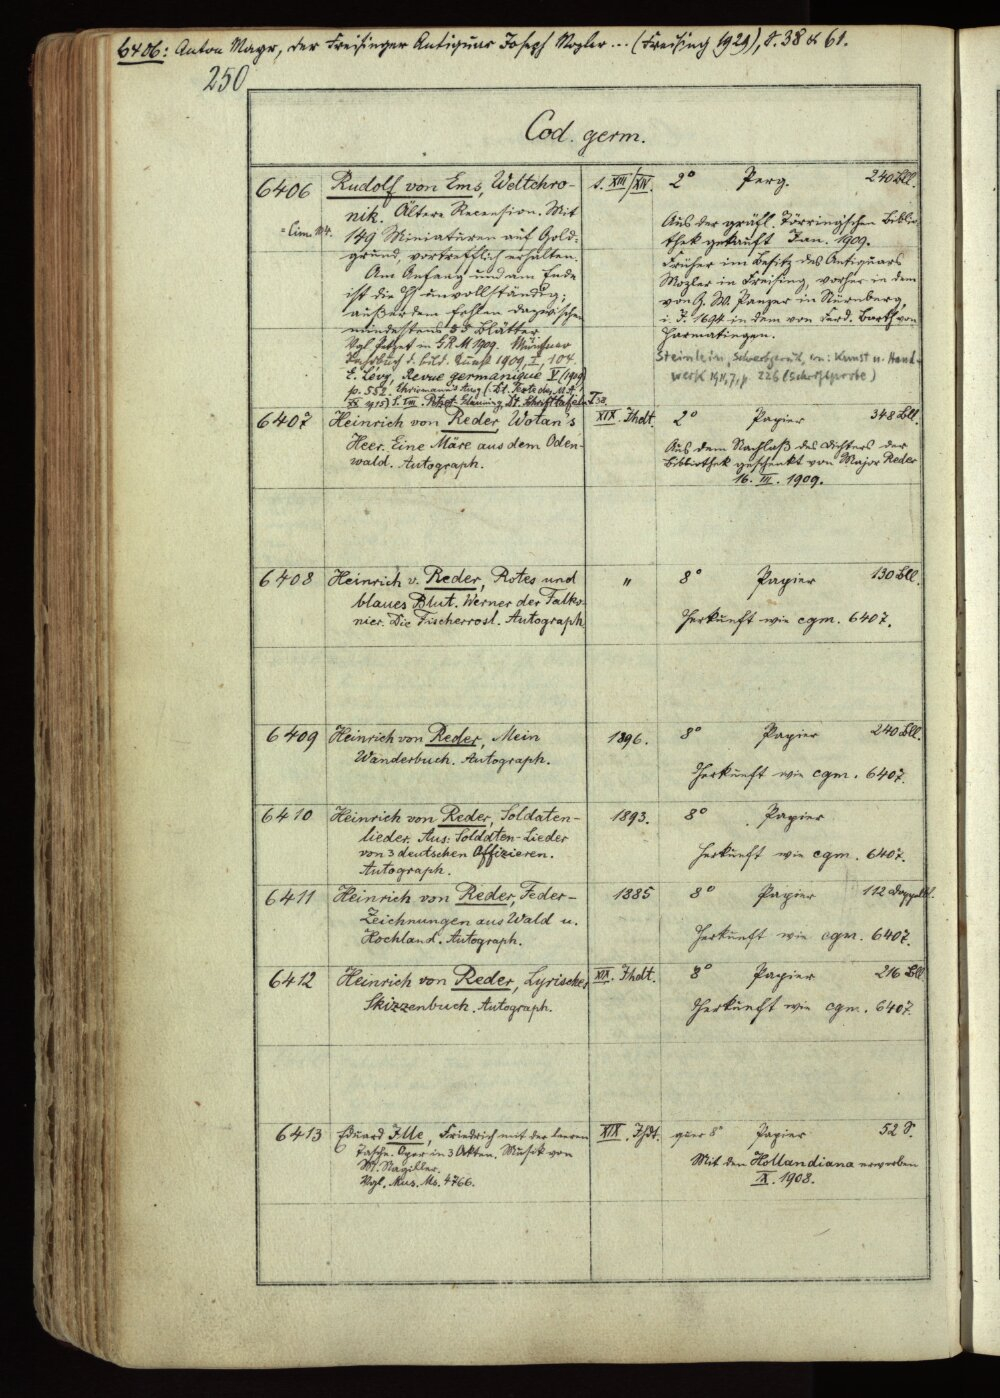 6406: Anton Mayr, der Freisinger Antiquar Joseph Mozler ... (Freising 1929), S. 38 & 61.
250
Cod. germ.
6406
= Cim. 104.
Rudolf von Ems, Weltchro-
nik. Ältere Recension. Mit
149 Miniaturen auf Gold-
grund, vortrefflich erhalten.
Am Anfang und am Ende
ist die Hs unvollständig;
außerdem fehlen dazwischen
mindestens 53 Blätter
Vgl. Petzet in GRM 1909. Münchner
Jahrbuch d. bild. Kunst 1909, I, 104.
E. Lévy, Revue germanique V (1909)
p. 552. Ehrismann's Ausg. (Dt. Texte des M.A.
XX 1915) S. VIII. Petzet-Glauning, Dt. Schrifttafeln T 38.
s. XIII/XIV.
2° Perg. 240 Bll.
Aus der gräfl. Törringschen Biblio-
thek gekauft Jan. 1909.
Früher im Besitz des Antiquars
Mozler in Freising, vorher in dem
von G. W. Panzer in Nürnberg,
i. J. 1694 in dem von Ferd. Barth von
Harmatingen.
Steinlein, in: Kunst u. Hand-
werk 1911, 7, p. 226 (Schriftprobe)
6407
Heinrich von Reder, Wotan's
Heer. Eine Märe aus dem Oden-
wald. Autograph.
XIX. Jhdt.
2° Papier 348 Bll.
Aus dem Nachlaß des Dichters der
Bibliothek geschenkt von Major Reder
16. III. 1909.
6408
Heinrich v. Reder, Rotes und
blaues Blut. Werner der Falko-
nier. Die Fischerrosl. Autograph
"
8° Papier 130 Bll.
Herkunft wie cgm. 6407.
6409
Heinrich von Reder, Mein
Wanderbuch. Autograph.
1896.
8° Papier 240 Bll.
Herkunft wie cgm. 6407.
6410
Heinrich von Reder, Soldaten-
lieder. Aus: Soldaten-Lieder
von 3 deutschen Offizieren.
Autograph.
1893.
8° Papier
Herkunft wie cgm. 6407.
6411
Heinrich von Reder, Feder-
Zeichnungen aus Wald u.
Hochland. Autograph.
1885
8° Papier 112 Doppelbl.
Herkunft wie cgm. 6407.
6412
Heinrich von Reder, Lyrisches
Skizzenbuch. Autograph.
XIX. Jhdt.
8° Papier 216 Bll
Herkunft wie cgm. 6407.
6413
Eduard Ille, Friedrich mit der leeren
Tasche. Oper in 3 Akten. Musik von
M. Nagiller.
Vgl. Mus. Ms. 4766.
XIX. Jhdt.
quer 8° Papier 52 S.
Mit den Hollandiana erworben
X. 1908.